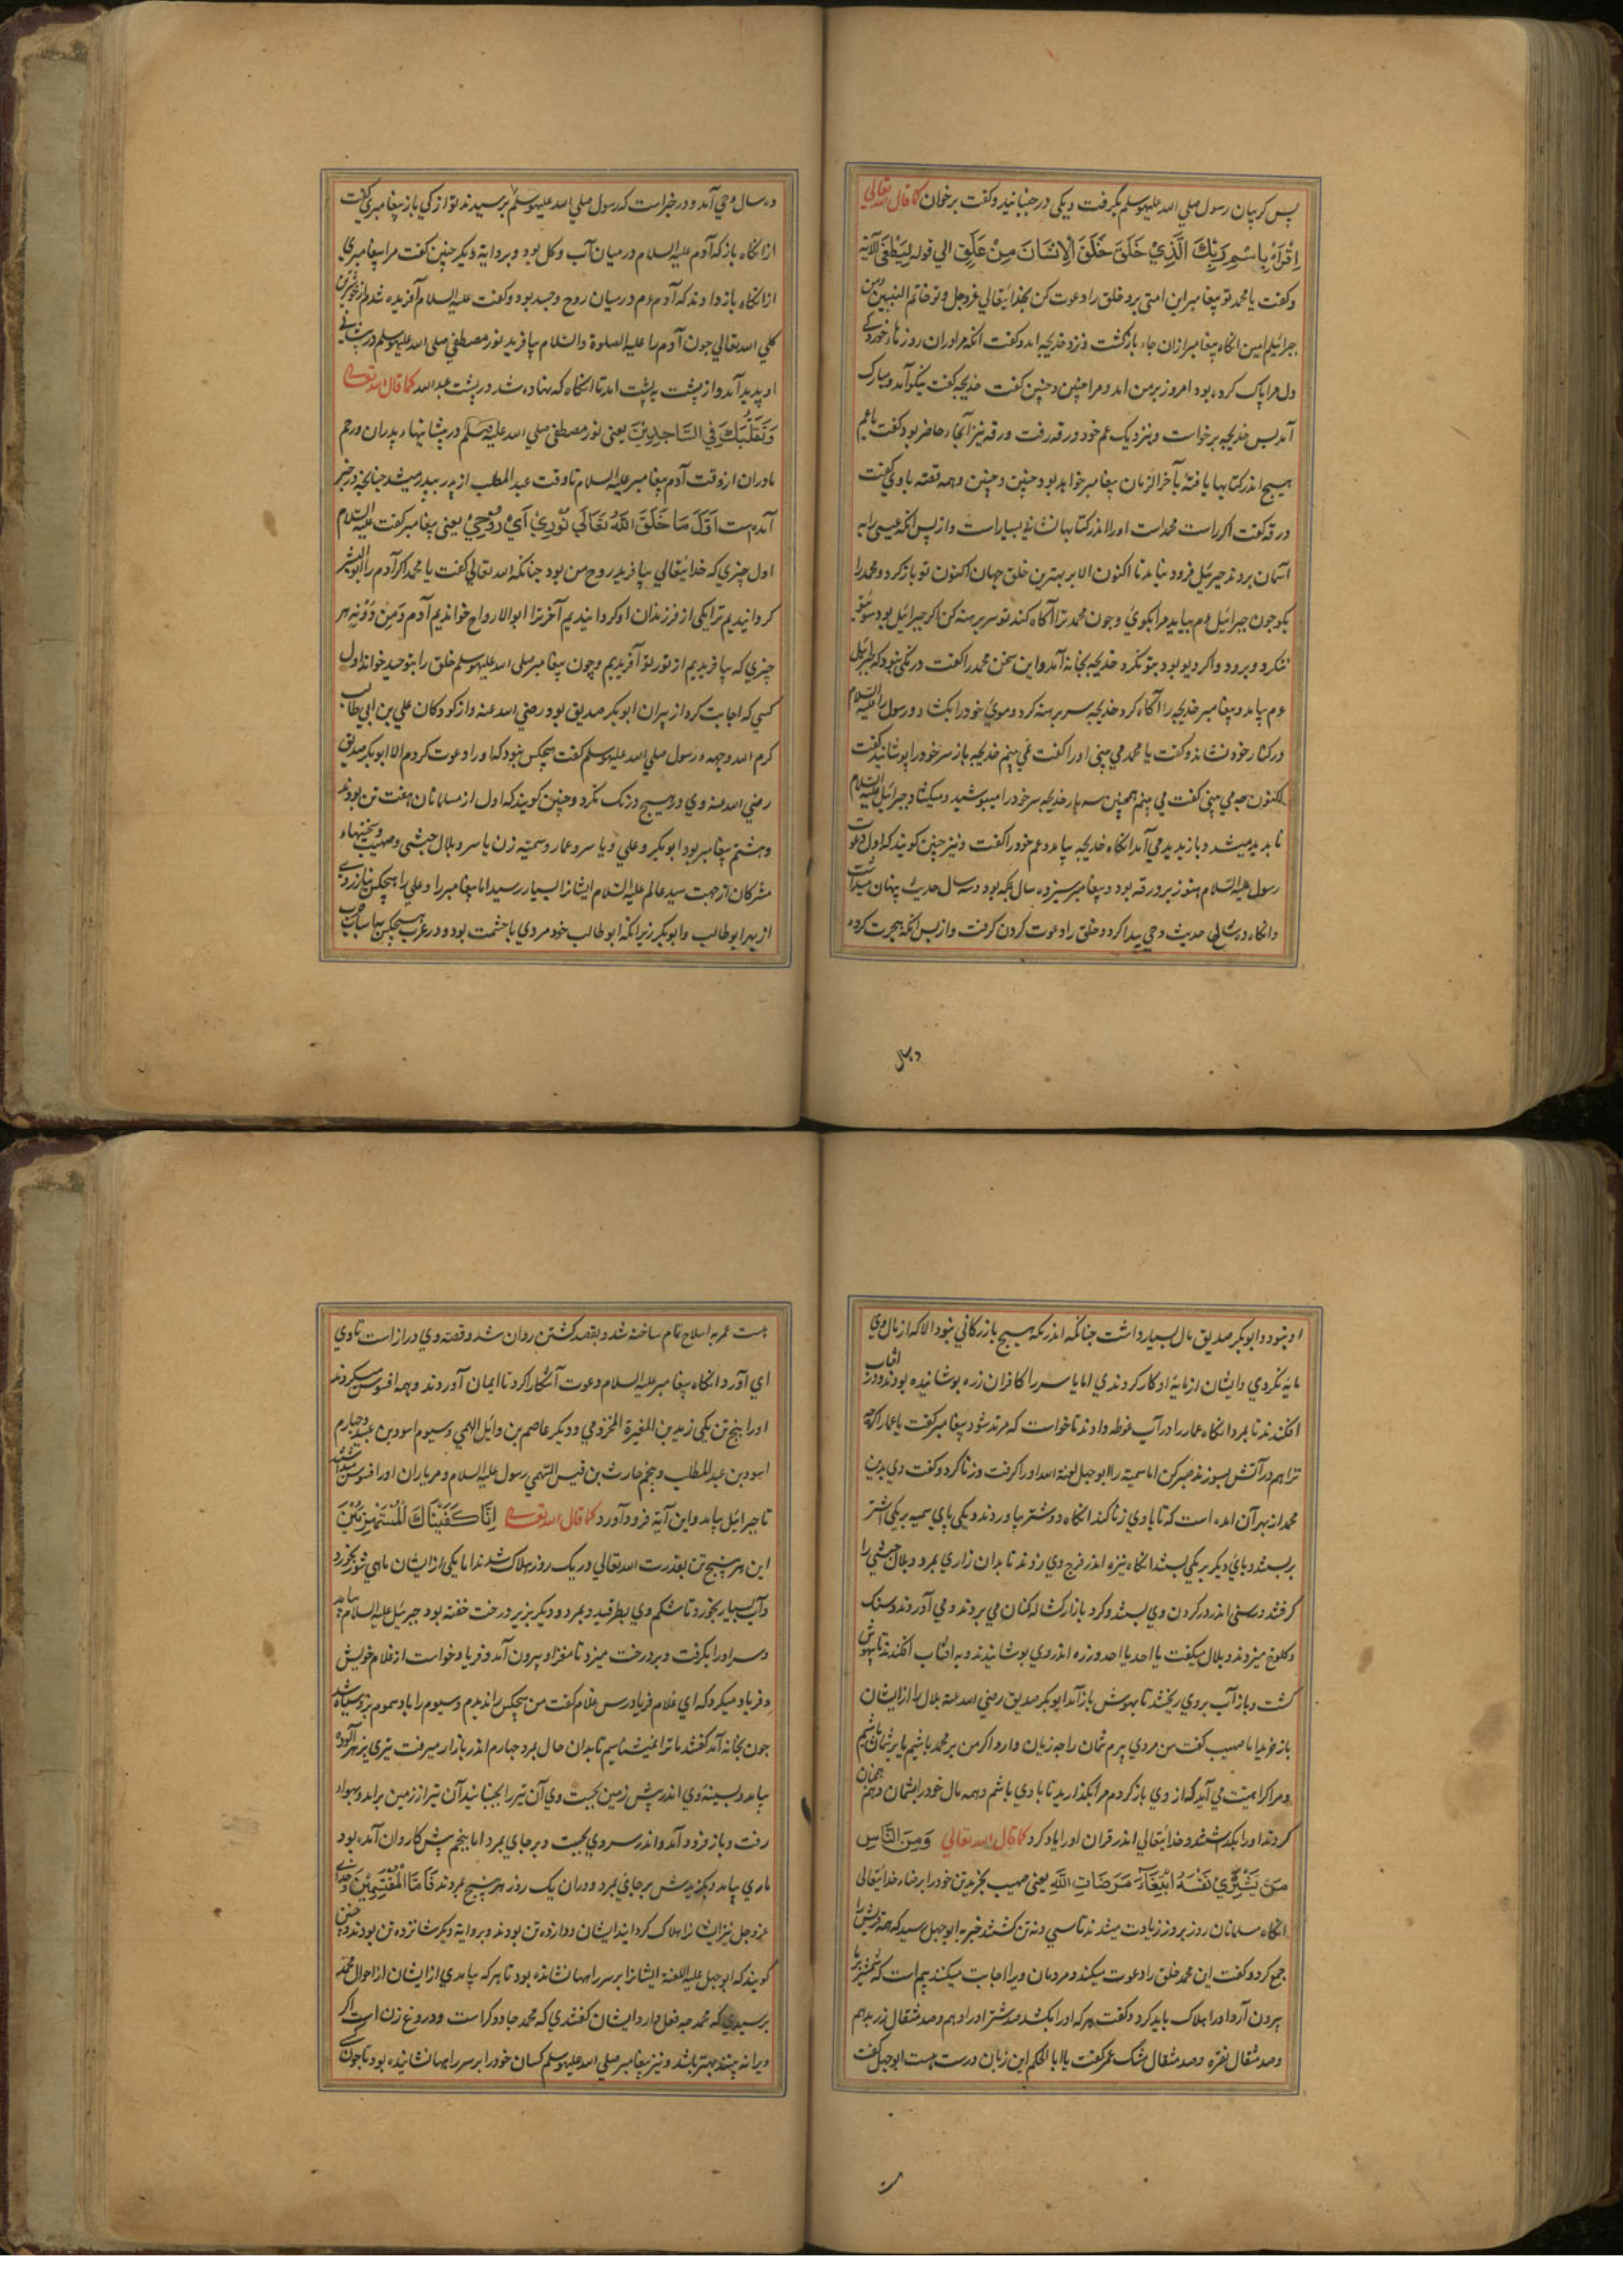 پس کریبان رسول صلی الله علیه وسلم بگرفت و یکی در جنبانید و کفت برخوان کما قال الله تعالی
اِقْرَاْ بِاسْمِ رَبِّكَ الَّذِيْ خَلَقَ خَلَقَ الْاِنْسَانَ مِنْ عَلَقٍ الی قوله لَیَطْغَی الآیه
و کفت یا محمد تو پیغامبر این امتی برو خلق را دعوت کن بخدایتعالی عزوجل و تو خاتم النبیین و من
جبرائیلم امین انکاه پیغامبر ازان جاء بازکشت و نزد خدیجه امد و کفت انکه مرا دران روز بار خورد کی
دل مرا پاک کرده بود امروز بر من امد و مرا چنین و چنین کفت خدیجه کفت نیکو آمد و مبارک
آمد پس خدیجه برخواست و بنزدیک عم خود ورقه رفت ورقه نیز آنجاء حاضر بود کفت یا عم
هیچ اندر کتابها یافتۀ بآخر الزمان پیغامبر خواهد بود چنین و چنین و همه قصّه با وی کفت
ورقه کفت اکر راست محمد است او را اندر کتابها نشانۀ بسیار است و از پس انکه عیسی را به
اسمان بردند جبرئیل فرود نیامد تا اکنون الا بر بهترین خلق جهان اکنون تو بازکرد و محمد را
بکو چون جبرائیل ءم بیاید مرا بکوی و چون محمد ترا آکاه کند تو سر برهنه کن اکر جبرائیل بود سوی تو
ننکرد و برود و اکر دیو بود بتو نکرد خدیجه بخانه آمد و این سخن محمد را کفت درنکی نبود که جبرائیل
ءم بیامد و پیغامبر خدیجه را آکاه کرد خدیجه سر برهنه کرد و موی خود را بکشاد و رسول را علیه السلام
در کنار خود نشاند و کفت یا محمد می بینی او را کفت نمی بینم خدیجه باز سر خود را پوشانید کفت
اکنون چه می بینی کفت می بینم همچنین سه بار خدیجه سر خود را میپوشید و میکشاد و جبرائیل علیه السلام
نا بدید میشد و باز بدید می آمد انکاه خدیجه بیامد و عم خود را کفت و نیز چنین کویند که اول دعوت
رسول علیه السلام هنوز بر ورقه بود و پیغامبر سیزده سال بمکه بود و سه سال حدیث پنهان میداشت
و انکاه ده سالی حدیث وحی پیدا کرد و خلق را دعوت کردن کرفت و از پس انکه هجرت کرده
ده سال
ده سال وحی آمد و در خبر است که رسول صلی الله علیه وسلم را پرسیدند تو از کی باز پیغامبری کفت
از انکاه باز که آدم علیه السلام در میان آب و کل بود و بروایة دیکر چنین کفت مرا پیغامبری
از انکاه باز دادند که آدم ءم در میان روح و جسد بود و کفت علیه السلام آفریده شدم
الله تعالی چون آدم را علیه الصلوة والسلام بیافرید نور مصطفی صلی الله علیه وسلم در پشانی
او پدید آمد و از پشت به پشت امد تا انکاه که نهاده شد در پشت عبد الله کما قال الله تعالی
وَتَقَلُّبَكَ فِي السَّاجِدِيْنَ یعنی نور مصطفی صلی الله علیه وسلم در پشانیهاء پدران و رحم
مادران از وقت آدم پیغامبر علیه السلام تا وقت عبد المطلب از پدر بپدر میشد چنانچه در خبر
آمده است اَوَّلَ مَا خَلَقَ اللهُ تَعَالَي نُوْرِيْ اَيْ رُوْحِيْ یعنی پیغامبر کفت علیه السلام
اول چیزی که خدایتعالی بیافرید روح من بود چنانکه الله تعالی کفت یا محمد اکر آدم را ابو البشر
کردانیدیم ترا یکی از فرزندان او کردانیدیم آخر ترا ابو الارواح خواندیم آدم وَمَنْ دُوْنِه هر
چیزی که بیافریدیم از نور تو آفریدیم و چون پیغامبر صلی الله علیه وسلم خلق را بتوحید خواند اول
کسی که اجابت کرد از پیران ابوبکر صدیق بود رضی الله عنه و از کودکان علی بن ابی طالب
کرم الله وجهه و رسول صلی الله علیه وسلم کفت هیچکس نبود که او را دعوت کردم الا ابوبکر صدیق
رضی الله عنه وی در هیچ درنک نکرد و چنین کویند که اول از مسلمانان هفت تن بودند
و هشتم پیغامبر بود ابوبکر و علی و یاسر و عمار و سمیّه زن یاسر و بلال حبشی و صهیب و سختیهاء
مشرکان از جهت سید عالم علیه السلام ایشانرا بسیار رسید اما پیغامبر را و علی را هیچکس نیازردی
از بهر ابو طالب و ابوبکر زیرا انکه ابو طالب خود مردی با حشمت بود و در عرب هیچکس بپاساب
او نبود و ابوبکر صدیق مال بسیار داشت چنانکه اندر مکه هیچ بازرکانی نبود الا که از مال وی
مایه نکردی و ایشان از مایۀ او کار کردندی اما یاسر را کافران زره پوشانیده بودند و در افتاب
افکندند تا بمرد انکاه عمار را در آب غوطه دادند تا خواست که مرتد شود پیغامبر کفت یا عمار اکرچه
ترا هم در آتش بسوزند صبر کن اما سمیّه را ابوجهل لعنة الله او را کرفت و زنا کرد و کفت وی بدین
محمد از بهر آن امده است که تا با وی زنا کند انکاه دو شتر بیاوردند و یکی پای سمیه بر یکی اشتر
بربستند و پای دیکر بر یکی بستند انکاه نیزه اندر فرج وی زدند تا بدان زاری بمرد و بلال حبشی را
کرفتند و رسنی اندر کردن وی بستند و کرد بازار کشاله کنان می بردند و می آوردند و سنک
و کلوخ میزدند و بلال میکفت یا احد یا احد و زره اندر وی پوشانیدند و به افتاب افکندند تا بیهوش
کشت و باز آب بروی ریختند تا بهوش باز آمد ابوبکر صدیق رضی الله عنه بلال را از ایشان
باز خرید اما صهیب کفت من مردی پیرم شما را چه زیان دارد اکر من بر محمد باشم یا بر شما باشم
و مرا کراهیت می آید که از وی بازکردم مرا بکذارید تا با وی باشم و همه مال خود را بشما دهم همچنان
کردند او را بکذاشتند و خدایتعالی اندر قران او را یاد کرد کما قال الله تعالی وَمِنَ النَّاسِ
مَنْ يَّشْرِيْ نَفْسَهُ ابْتِغَآءَ مَرَضَاتِ اللهِ یعنی صهیب بخریدتن خود را برضاء خدایتعالی
انکاه مسلمانان روز بروز زیادت میشدند تا سی و نه تن کشتند خبر به ابو جهل رسید که همه قریش را
جمع کرد و کفت این محمد خلق را دعوت میکند و مردمان ویرا اجابت میکنند بیم است که شمشیر بر ما
بیرون آرد او را هلاک باید کرد و کفت هر که او را بکشد صد شتر او را دهم و صد مثقال زر بدهم
و صد مثقال نقره و صد مثقال مشک عمر کفت یا ابا الحکم این زبان درست هست ابوجهل کفت
هست عمر به اسلاح تمام ساخته شد و بقصد کشتن روان شد و قصّه وی دراز است تا وی
ای آورد انکاه پیغامبر علیه السلام دعوت آشکارا کرد تا ایمان آوردند و همه افسوس میکردند
او را پنج تن یکی زید بن المغیرة المخزومی و دیکر عاصم بن وایل السهمی و سیوم اسود بن عبید و چهارم
اسود بن عبد المطلب و پنجم حارث بن قیس السهمی رسول علیه السلام و مر یاران او را افسوس میداشتند
تا جبرائیل بیامد و این آیة فرود آورد کما قال الله تعالی اِنَّا كَفَيْنَاكَ الْمُسْتَهْزِئِيْنَ
این هر پنج تن بقدرت الله تعالی در یک روز هلاک شدند اما یکی از ایشان ماهی شور بخورد
و آب بسیار بخورد تا شکم وی بطرقید و بمرد و دیکر بزیر درخت خفته بود جبرئیل علیه السلام بیامد
و سر او را بکرفت و بر درخت میزد تا مغز او بیرون آمد و فریاد خواست از غلام خویش
و فریاد میکرد که ای غلام فریاد رس غلام کفت من هیچکس را ندیدم و سیوم را باد سموم بزد و سیاه شد
چون بخانه آمد کفتند ما ترا نمیشناسیم تا بدان حال بمرد چهارم اندر بازار میرفت تیری بزهر آلوده
بیامد و بسینۀ وی اندر پش زمین بجست وی آن تیر را بجنبانید آن تیر از زمین برامد و بهوا
رفت و باز فرود آمد و اندر سر وی بجست و بر جای بمرد اما پنجم پش کاروان آمده بود
ماری بیامد و بکزیدش بر جای بمرد و در ان یک روز هر پنج بمردند فَاَمَّا الْمُقْتَسِمِيْنَ خدای
عزوجل نیز ایشانرا هلاک کردانید ایشان دوازده تن بودند و بروایة دیکر شانزده تن بودند و چنین
کویند که ابوجهل علیه اللعنة ایشانرا بر سر راهها نشانده بود تا هر که بیامدی از ایشان از احوال محمد
پرسیدی که محمد چه فعل دارد ایشان کفتندی که محمد جادوکر است و دروغ زن است اکر کسی
ویرا نه بیند بهتر باشد و نیز پیغامبر صلی الله علیه وسلم کسان خود را بر سر راهها نشانیده بود تا چون